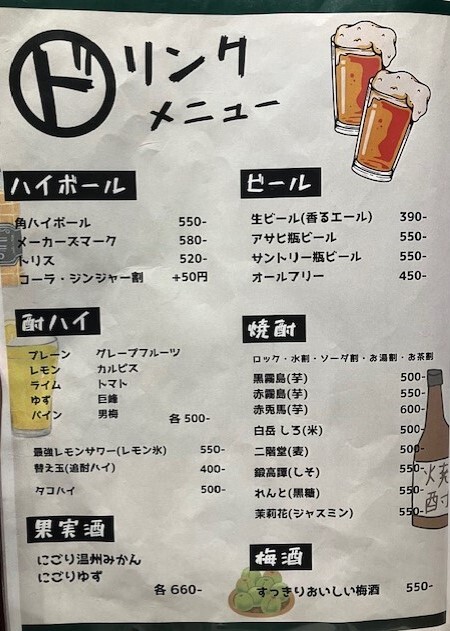 ドリンク
メニュー
ハイボール
角ハイボール 550-
メーカーズマーク 580-
トリス 520-
コーラ・ジンジャー割 +50円
ビール
生ビール(香るエール) 390-
アサヒ瓶ビール 550-
サントリー瓶ビール 550-
オールフリー 450-
酎ハイ
プレーン グレープフルーツ
レモン カルピス
ライム トマト
ゆず 巨峰
パイン 男梅 各500-
最強レモンサワー(レモン氷) 550-
替え玉(追酎ハイ) 400-
タコハイ 500-
焼酎
ロック・水割・ソーダ割・お湯割・お茶割
黒霧島(芋) 500-
赤霧島(芋) 550-
赤兎馬(芋) 600-
白岳 しろ(米) 500-
二階堂(麦) 500-
鍛高譚(しそ) 550-
れんと(黒糖) 550-
茉莉花(ジャスミン) 550-
果実酒
にごり温州みかん
にごりゆず
各660-
梅酒
すっきりおいしい梅酒 550-